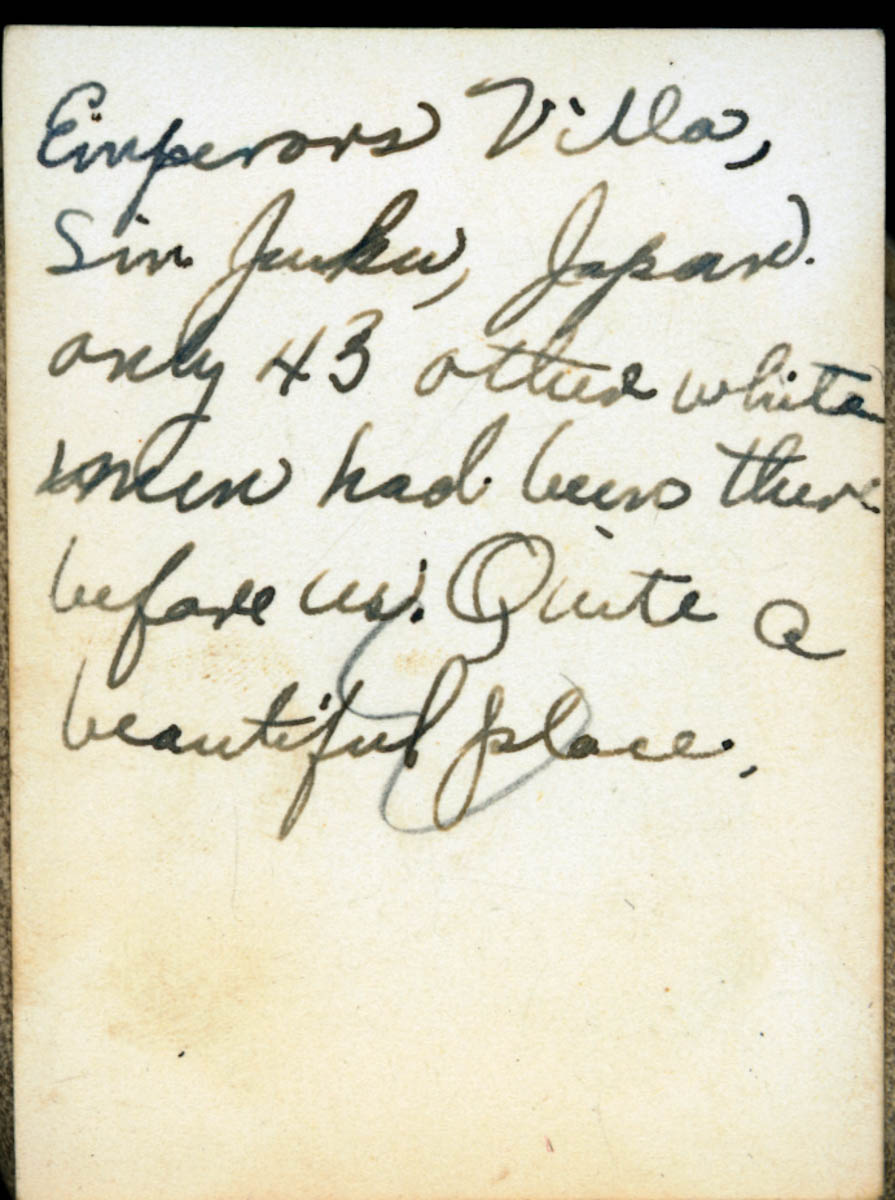 Emperors Villa,
Sin Juku, Japan.
only 43 other white
men had been there
before us. Quite a
beautiful place.